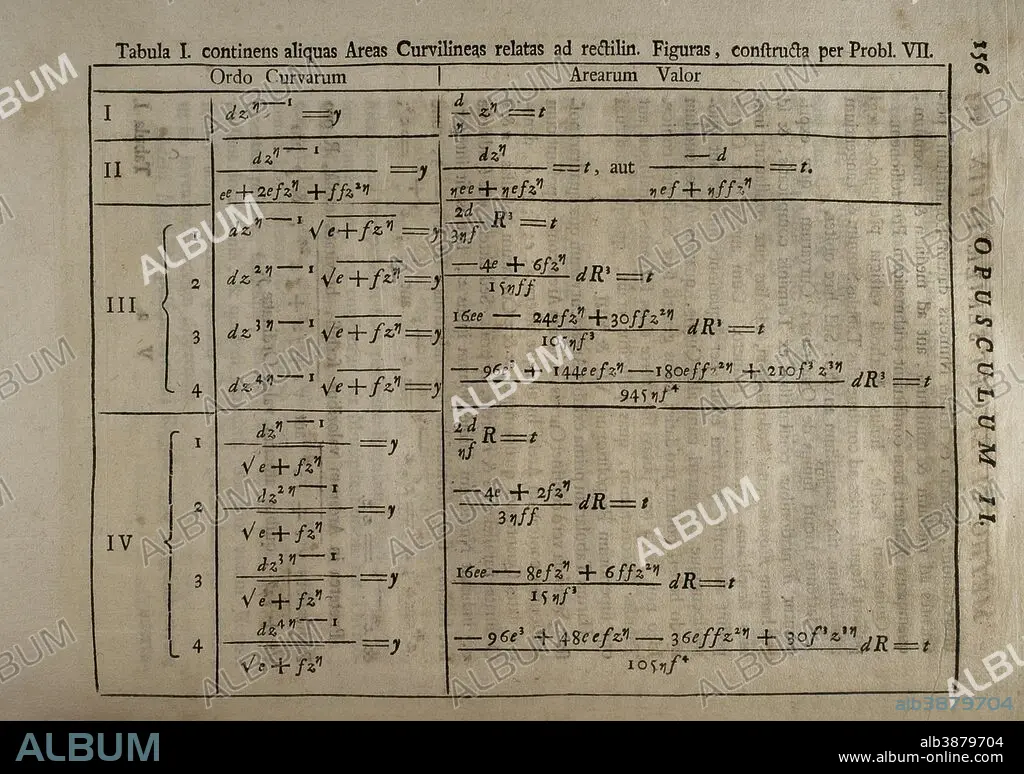 Tabula I. continens aliquas Areas Curvilineas relatas ad rectilin. Figuras, conſtructa per Probl. VII.
156
Ordo Curvarum | Arearum Valor
I | dz^{η—1} = y | d/η z^η = t
II | dz^{η—1} / (ee + 2efz^η + ffz^{2η}) = y | dz^η / (ηee + ηefz^η) = t, aut —d / (ηef + ηffz^η) = t.
III
1 | dz^{η—1} √(e + fz^η) = y | 2d/3ηf R³ = t
2 | dz^{2η—1} √(e + fz^η) = y | (—4e + 6fz^η) / 15ηff dR³ = t
3 | dz^{3η—1} √(e + fz^η) = y | (16ee — 24efz^η + 30ffz^{2η}) / 105ηf³ dR³ = t
4 | dz^{4η—1} √(e + fz^η) = y | (—96e³ + 144eefz^η — 180effz^{2η} + 210f³z^{3η}) / 945ηf⁴ dR³ = t
IV
1 | dz^{η—1} / √e + fz^η = y | 2d/ηf R = t
2 | dz^{2η—1} / √e + fz^η = y | (—4e + 2fz^η) / 3ηff dR = t
3 | dz^{3η—1} / √e + fz^η = y | (16ee — 8efz^η + 6ffz^{2η}) / 15ηf³ dR = t
4 | dz^{4η—1} / √e + fz^η = y | (—96e³ + 48eefz^η — 36effz^{2η} + 30f³z^{3η}) / 105ηf⁴ dR = t
OPUSCULUM II.
ALBUM
alb3879704
ALBUM
alb3879704
www.album-online.com